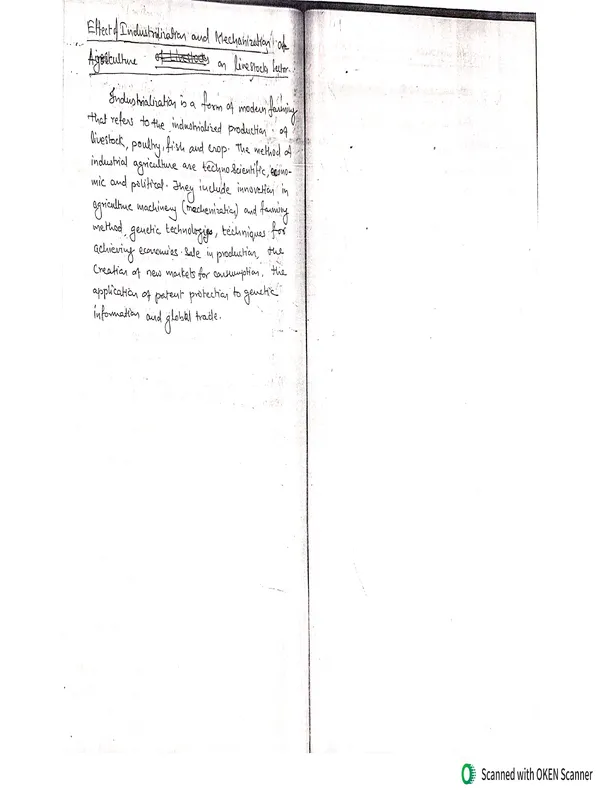 Effect of Industrialization and Mechanization of
Agriculture of Livestock on livestock sector.
Industrialization is a form of modern farming
that refers to the industrialized production of
livestock, poultry, fish and crop. The method of
industrial agriculture are technoscientific, econo-
mic and political. They include innovation in
agriculture machinery (mechenization) and farming
method, genetic technologies, techniques for
achieving economies Sale in production, the
Creation of new markets for consumption. the
application of patent protection to genetic
information and global trade.
Scanned with OKEN Scanner